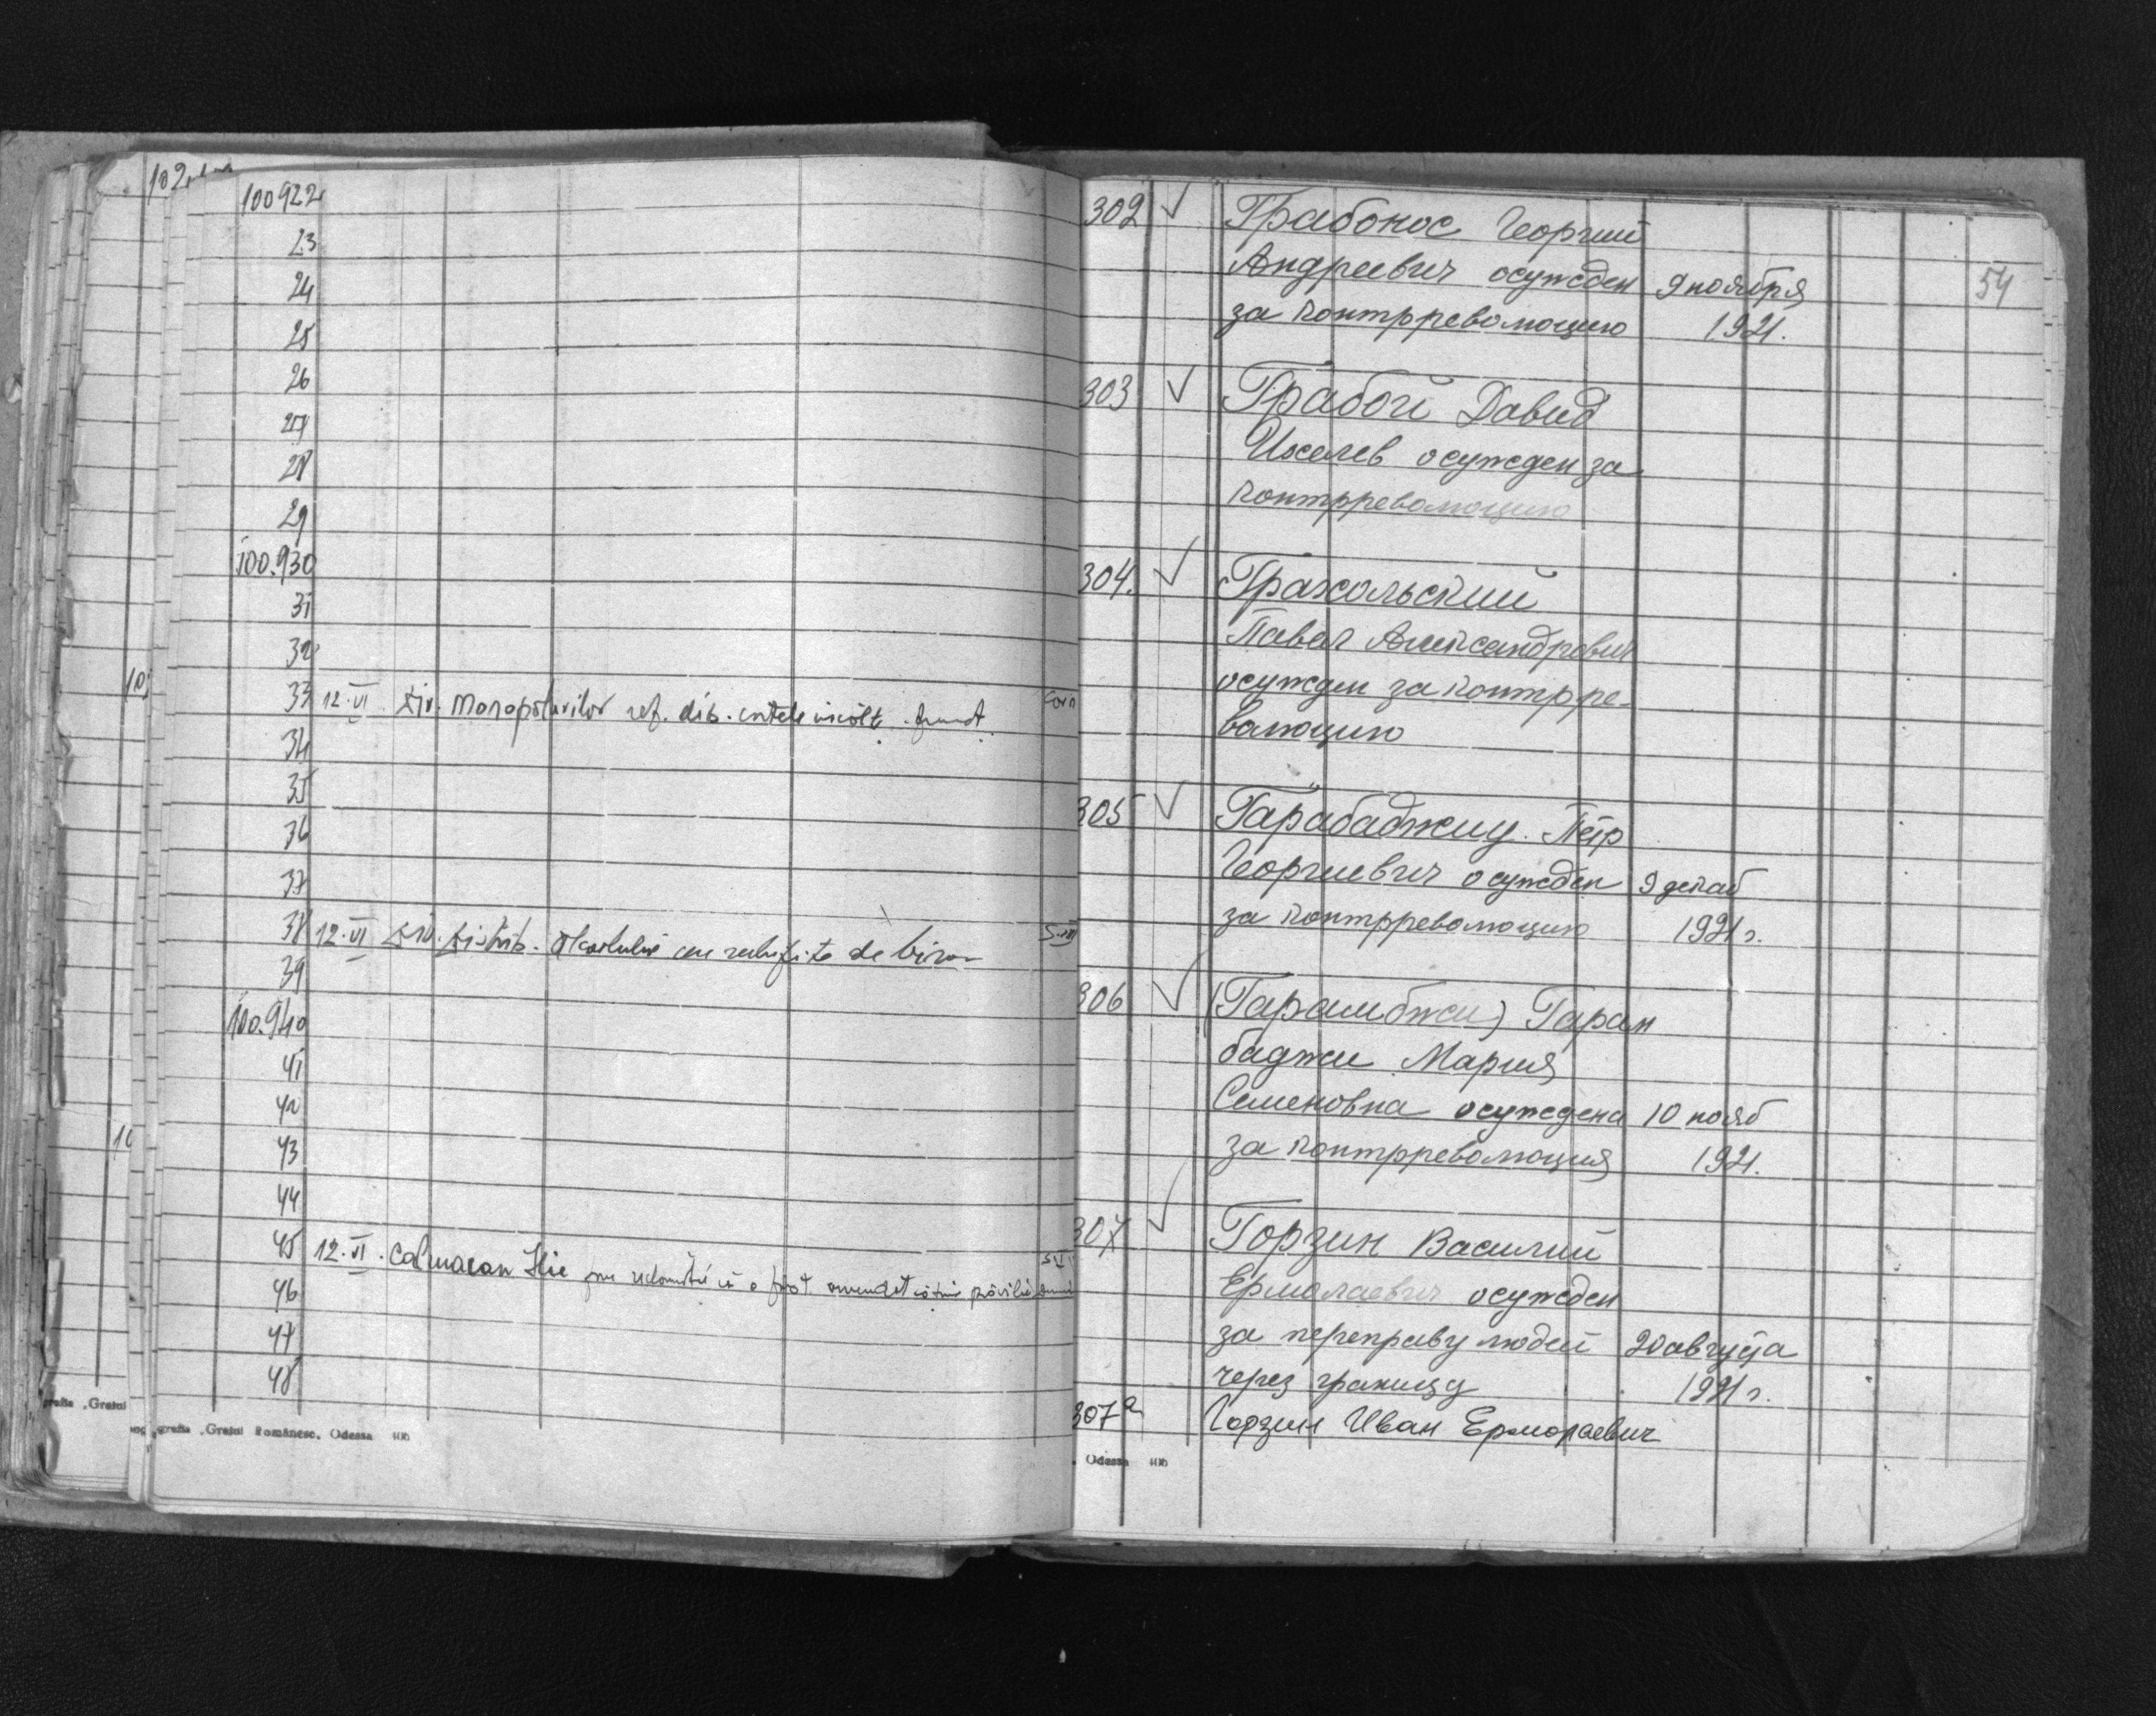 102
100922
23
24
25
26
27
28
29
100.930
31
32
33 12·VI Div. Monopolurilor ref. dis.
34
35
36
37
38 12·VI Div. Distrib. de
39
100.940
41
42
43
44
45 12·VI. Calmacan Ilie
46
47
48
grafia „Graiul Românesc„ Odessa 406
54
302 √ Грабонос Георгий
Андреевич осужден 9 ноября
за контрреволюцию 1921.
303 √ Грабой Давид
осужден за
контрреволюцию
304. √ Гражольский
Павел Александрович
осужден за контрре-
волюцию
305 √ Гарабаджиу Пётр
Георгиевич осужден 9 декаб
за контрреволюцию 1921 г.
306 √ (Гарамбжи) Гаран
баджи Мария
Семеновна осуждена 10 нояб
за контрреволюция 1921.
307 √ Горзин Василий
Ермолаевич осужден
за переправу людей 20 августа
через границу 1921 г.
307а Горзин Иван Ермолаевич
Odessa 406